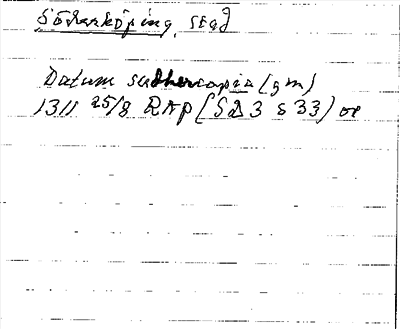 Söderköping, stad
Datum su vidimacopia (gm)
1311 25/8 RAp (SD 3 s 33) or